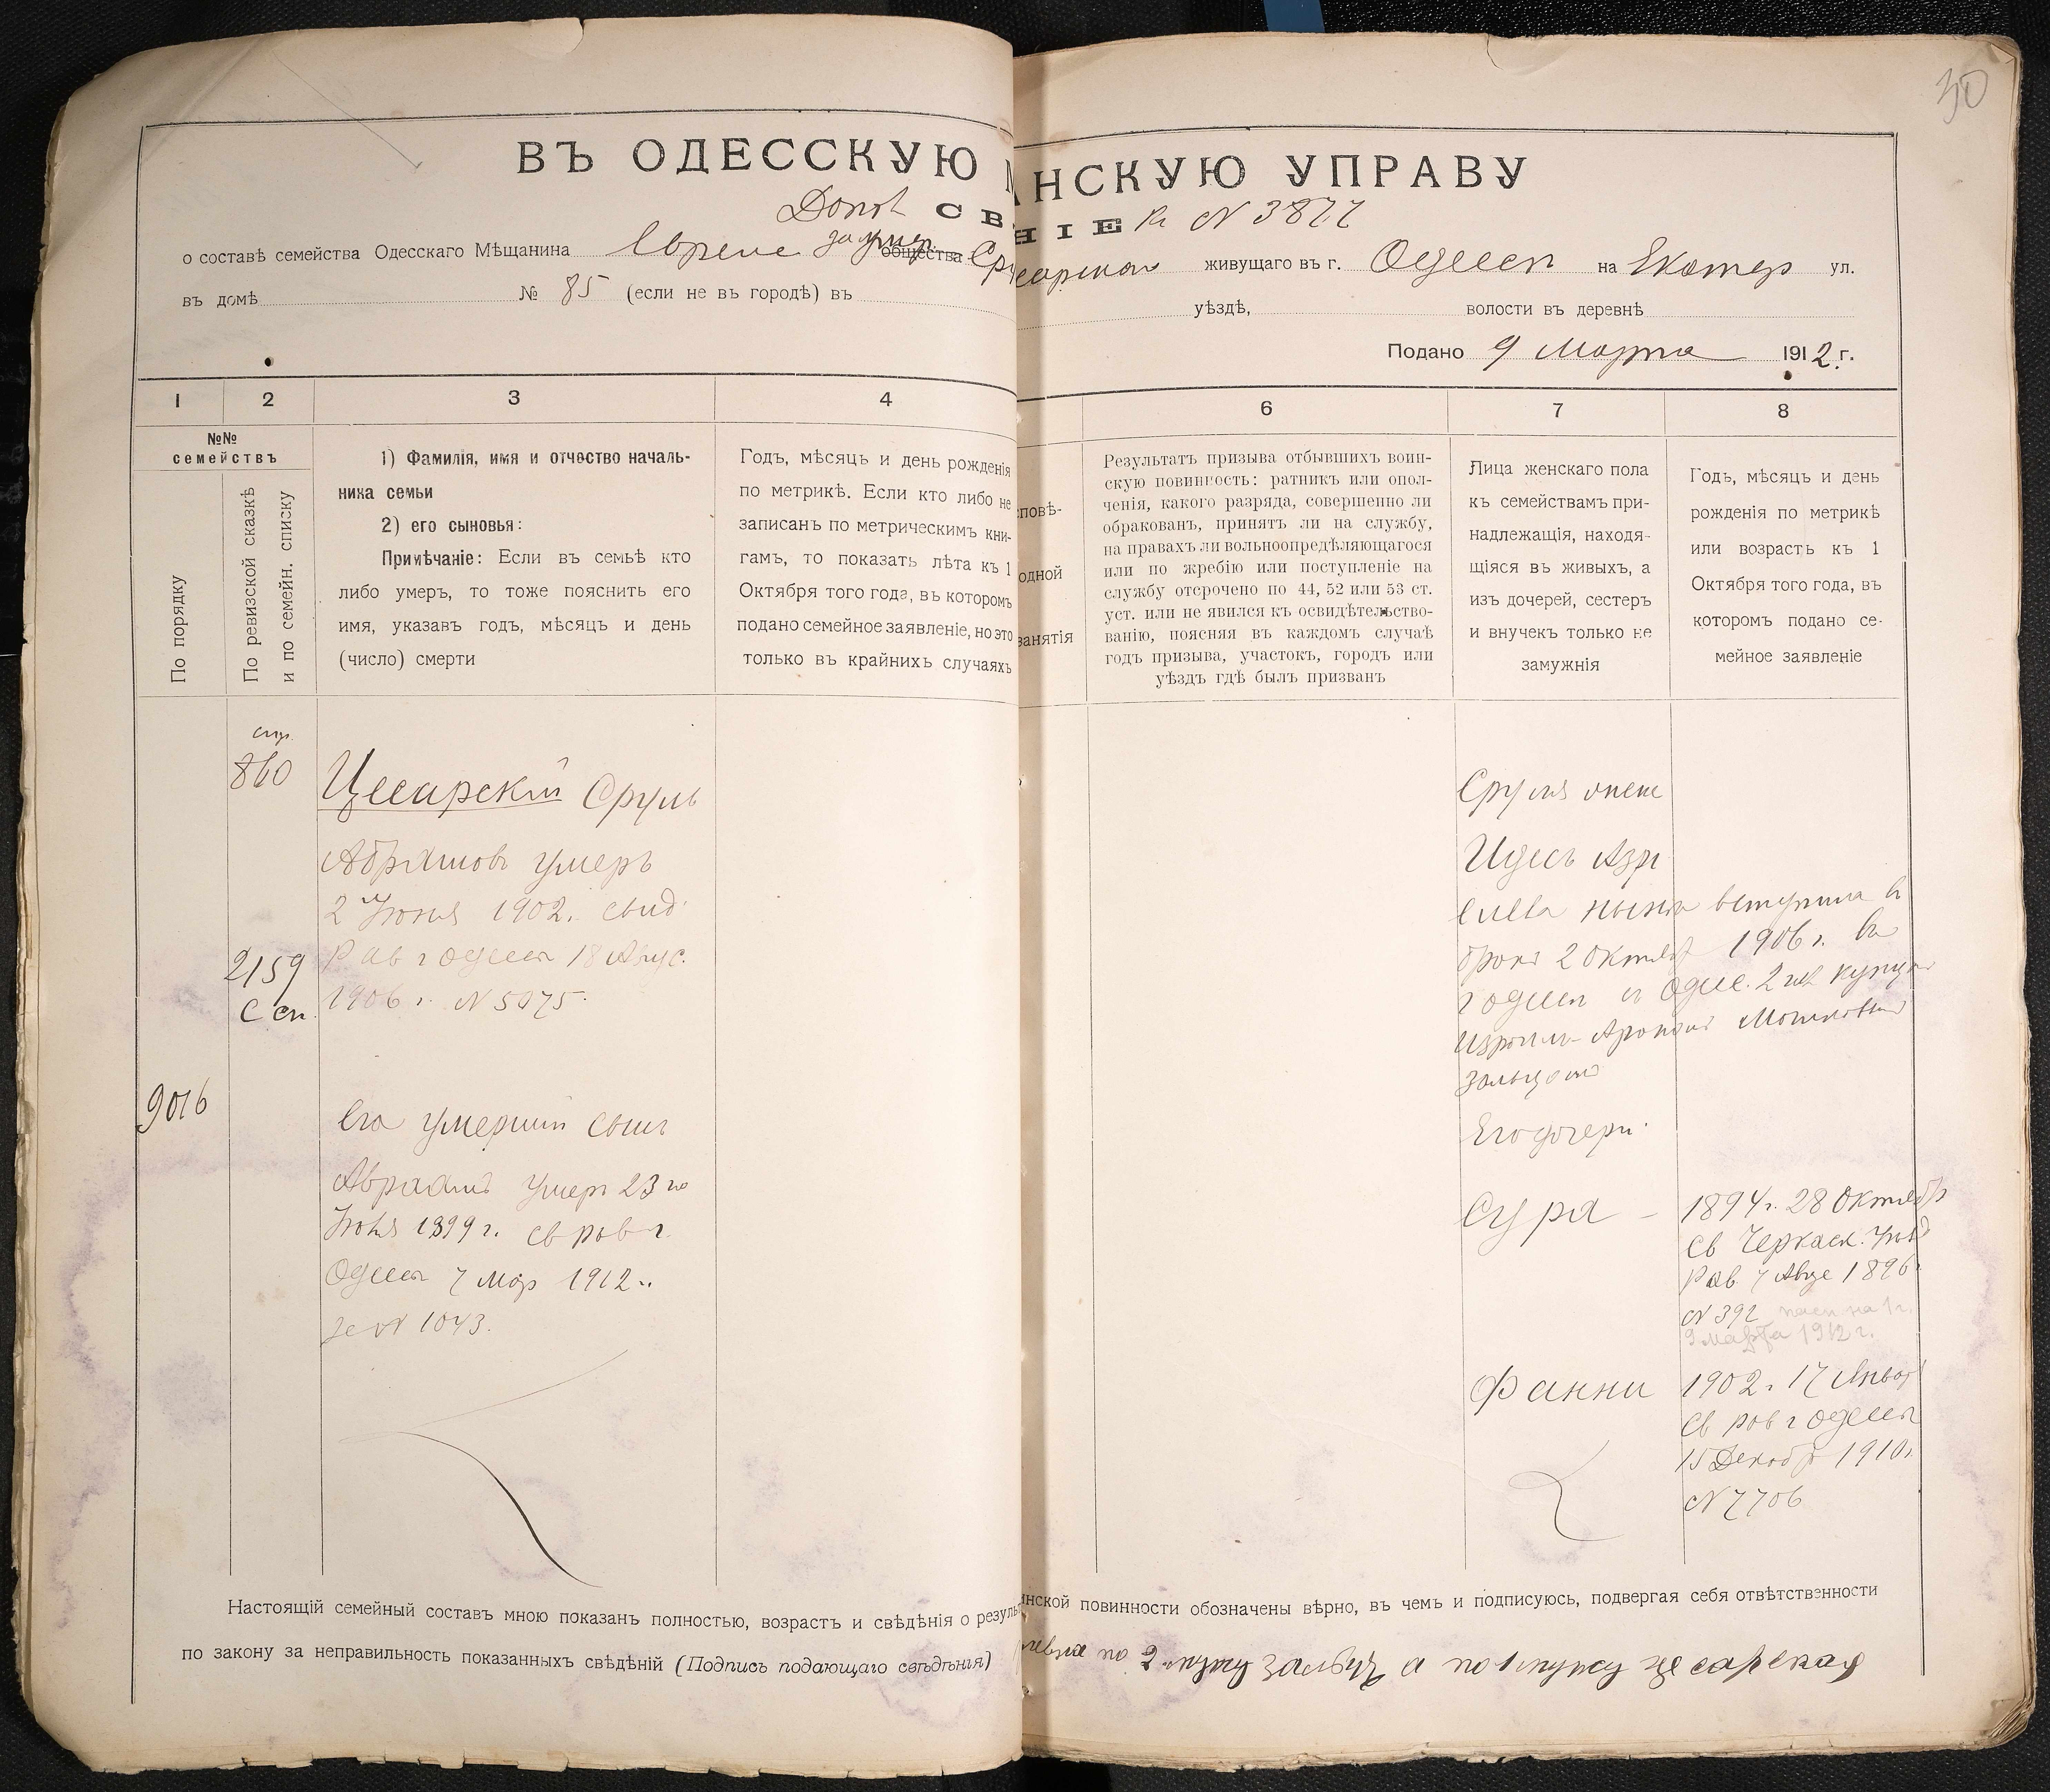 30
ВЪ ОДЕССКУЮ М НСКУЮ УПРАВУ
Допол СВ НІЕ къ N 3877
о составѣ семейства Одесскаго Мѣщанина Еврея за умер. общества живущаго въ г. Одессѣ на Екатер ул.
въ домѣ № 85 (если не въ городѣ) въ уѣздѣ, волости въ деревнѣ
Подано 9 Марта 1912 г.
1 2 3 4 6 7 8
№№ семействъ
По порядку
По ревизской сказкѣ и по семейн. списку
1) Фамилія, имя и отчество началь-
ника семьи
2) его сыновья:
Примѣчаніе: Если въ семьѣ кто
либо умеръ, то тоже пояснить его
имя, указавъ годъ, мѣсяцъ и день
(число) смерти
Годъ, мѣсяцъ и день рожденія
по метрикѣ. Если кто либо не
записанъ по метрическимъ кни-
гамъ, то показать лѣта къ 1
Октября того года, въ которомъ
подано семейное заявленіе, но это
только въ крайнихъ случаяхъ
повѣ-
одной
занятія
Результатъ призыва отбывшихъ воин-
скую повинность: ратникъ или опол-
ченія, какого разряда, совершенно ли
обракованъ, принятъ ли на службу,
на правахъ ли вольноопредѣляющагося
или по жребію или поступленіе на
службу отсрочено по 44, 52 или 53 ст.
уст. или не явился къ освидѣтельство-
ванію, поясняя въ каждомъ случаѣ
годъ призыва, участокъ, городъ или
уѣздъ гдѣ былъ призванъ
Лица женскаго пола
къ семействамъ при-
надлежащія, находя-
щіяся въ живыхъ, а
изъ дочерей, сестеръ
и внучекъ только не
замужнія
Годъ, мѣсяцъ и день
рожденія по метрикѣ
или возрастъ къ 1
Октября того года, въ
которомъ подано се-
мейное заявленіе
стр.
860
Цесарскій Сруль
Абрамовъ умеръ
2 Іюня 1902. свид.
Рав г Одессы 18 Авгус.
1906 г. N 5075.
2159
С сп.
9016
Его умершій сынъ
Авраамъ умеръ 23 го
Іюня 1899 г. св рав г.
Одессы 7 Мар 1912 г.
за N 1043.
Сруля жена
Идесъ Азрі
елева нынѣ вступила въ
бракъ 2 Октября 1906 г. въ
г Одессѣ съ Одес. 2 гил купцомъ
Израиль-Арономъ Мошковымъ
Его дочери.
Сура - 1894 г. 28 Октября
св Черкаск. Уѣзд
Рав. 7 Авгус 1896 г.
N 392 пасп на 1 г.
9 марта 1912 г.
Фанни 1902 г. 17 Январ
св рав г Одессы
15 Декабр 1910 г.
N 7706
Настоящій семейный составъ мною показанъ полностью, возрастъ и свѣдѣнія о резуль нской повинности обозначены вѣрно, въ чемъ и подписуюсь, подвергая себя отвѣтственности
по закону за неправильность показанныхъ свѣдѣній (Подпись подающаго свѣдѣнія) по 2 мужу а по 1 мужу цесарская